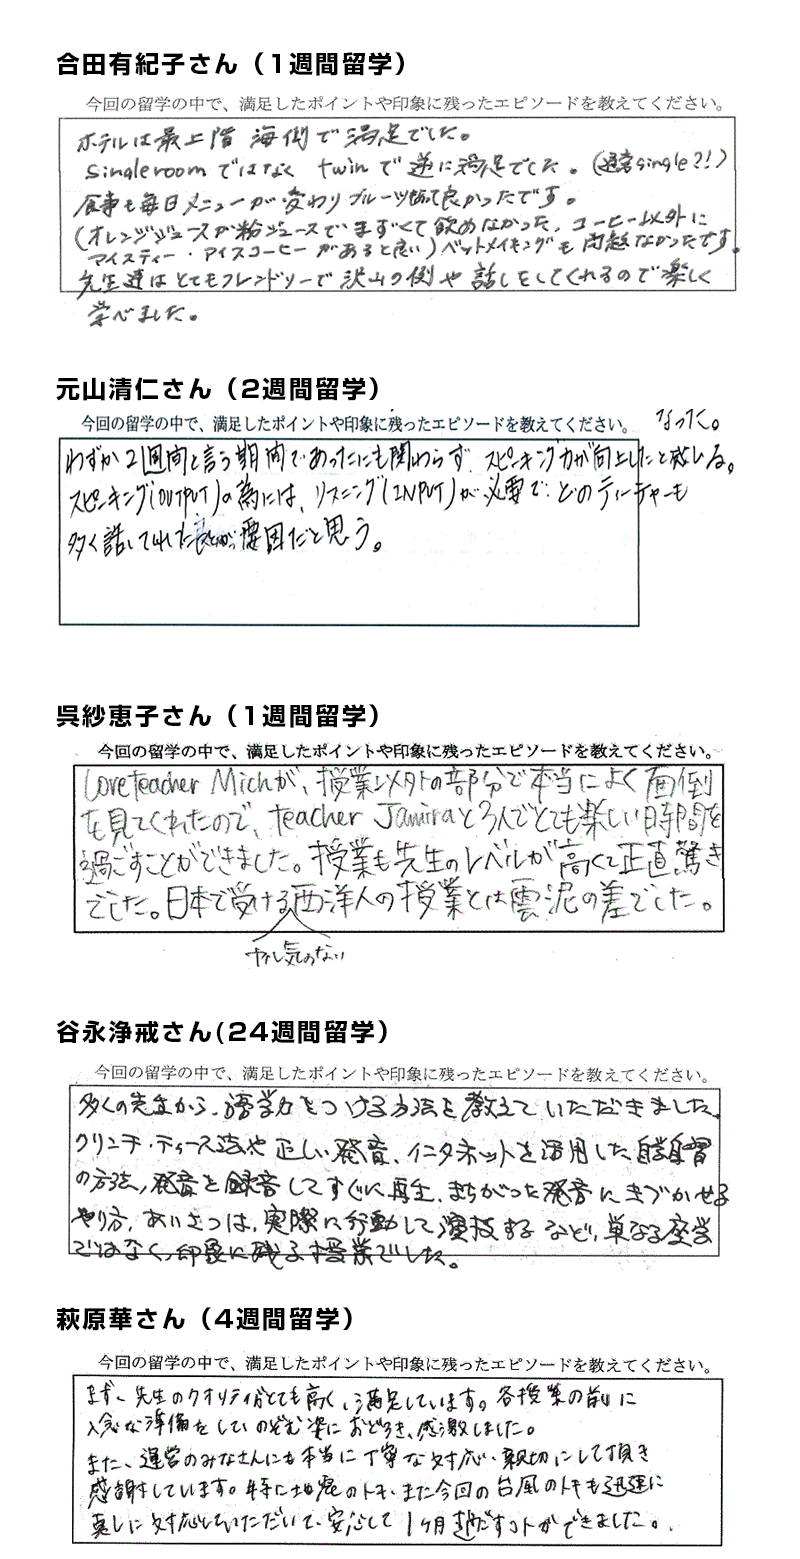 合田有紀子さん（1週間留学）
今回の留学の中で、満足したポイントや印象に残ったエピソードを教えてください。
ホテルは最上階 海側で満足でした。
Singleroomではなく twinで逆に満足でした。(通常single?!)
食事も毎日メニューが変わりフルーツもあって良かったです。
(オレンジジュースが粉ジュースでまずくて飲めなかった. コーヒー以外に
アイスティー・アイスコーヒーがあると良い)ベットメイキングも問題なかったです。
先生達はとてもフレンドリーで沢山の例や話しをしてくれるので楽しく
学べました。
元山清仁さん（2週間留学）
今回の留学の中で、満足したポイントや印象に残ったエピソードを教えてください。
なった。
わずか2週間と言う期間であったにも関わらず、スピーキング力が向上したと感じる。
スピーキング(OUTPUT)の為には、リスニング(INPUT)が必要で、どのティーチャーも
多く話してくれた 要因だと思う。
呉紗恵子さん（1週間留学）
今回の留学の中で、満足したポイントや印象に残ったエピソードを教えてください。
Love teacher Michが、授業以外の部分で本当によく面倒
を見てくれたので、teacher Jamiraと3人でとても楽しい時間を
過ごすことができました。授業も先生のレベルが高くて正直驚き
でした。日本で受ける西洋人の授業とは雲泥の差でした。
やる気のない
谷永浄戒さん(24週間留学）
今回の留学の中で、満足したポイントや印象に残ったエピソードを教えてください。
多くの先生から、語学力をつける方法を教えていただきました。
クリンチ・ティース法や正しい発音、インタネットを活用した自学自習
の方法、発音を録音してすぐに再生、まちがった発音にきづかせる
やり方、あいさつは、実際に行動して演技するなど、単なる座学
ではなく、印象に残る授業でした。
萩原華さん（4週間留学）
今回の留学の中で、満足したポイントや印象に残ったエピソードを教えてください。
まず、先生のクオリティがとても高く、満足しています。各授業の前に
入念な準備をしてのぞむ姿におどろき、感激しました。
また、運営のみなさんにも本当に丁寧な対応・親切にして頂き
感謝しています。特に地震のトキ、また今回の台風のトキも迅速に
真しに対応していただいて、安心して1ヶ月過ごすコトができました。